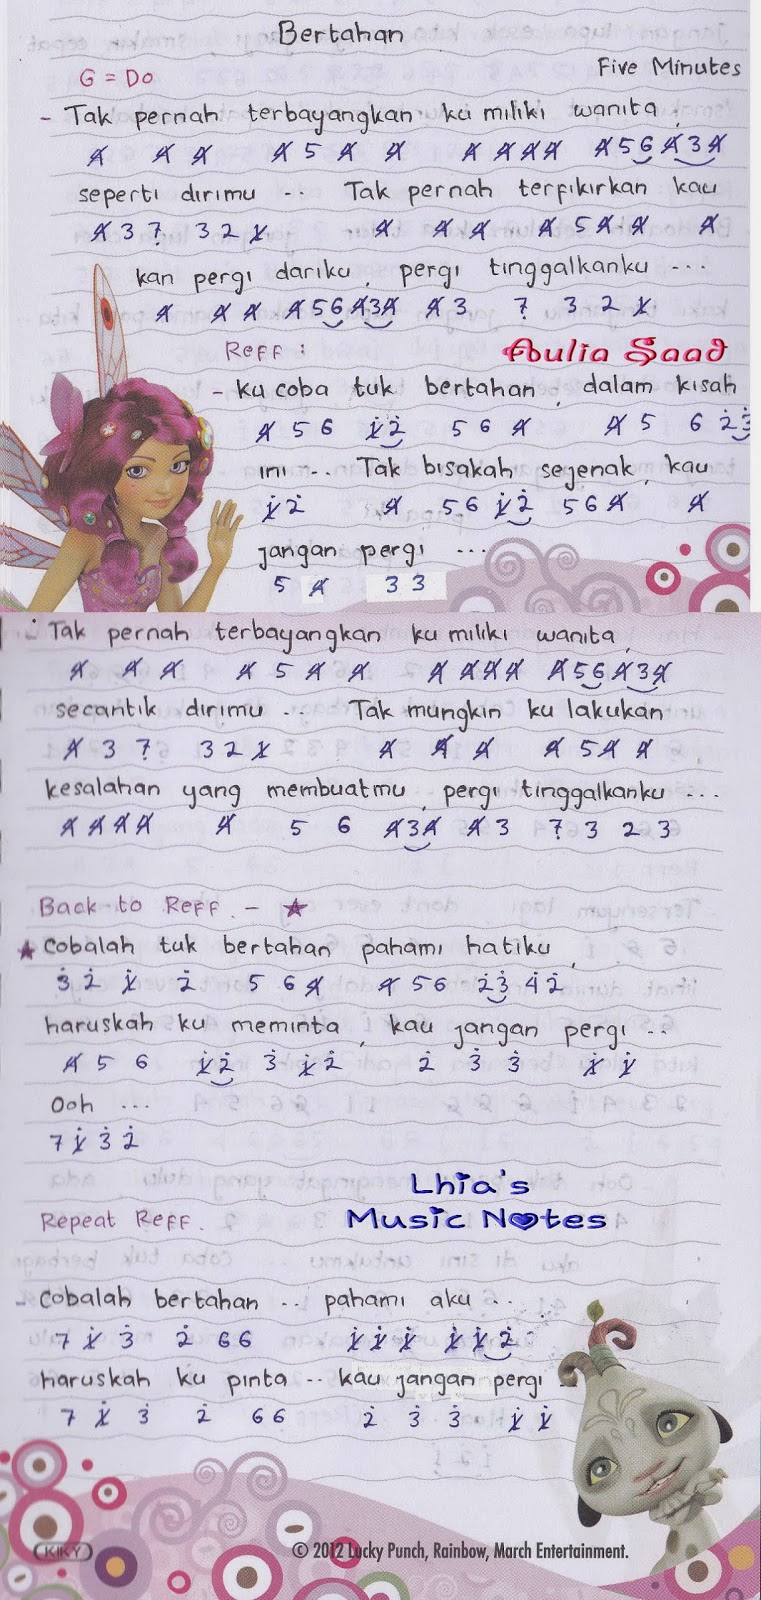 Bertahan
G = Do
Five Minutes
- Tak pernah terbayangkan ku miliki wanita,
4̸ 4̸ 4̸ 4̸ 5 4̸ 4̸ 4̸ 4̸ 4̸ 4̸ 4̸ 5 6 4̸ 3 4̸
seperti dirimu ... Tak pernah terfikirkan kau
4̸ 3 7̣ 3 2 1̸ 4̸ 4̸ 4̸ 4̸ 5 4̸ 4̸ 4̸
kan pergi dariku, pergi tinggalkanku ...
4̸ 4̸ 4̸ 4̸ 5 6 4̸ 3 4̸ 4̸ 3 7̣ 3 2 1̸
Reff :
Aulia Saad
- ku coba tuk bertahan, dalam kisah
4̸ 5 6 1̸̇ 2̇ 5 6 4̸ 4̸ 5 6 2̇ 3̇
ini ... Tak bisakah sejenak, kau
1̸̇ 2̇ 4̸ 5 6 1̸̇ 2̇ 5 6 4̸ 4̸
jangan pergi ...
5 4̸ 3 3
- Tak pernah terbayangkan ku miliki wanita,
4̸ 4̸ 4̸ 4̸ 5 4̸ 4̸ 4̸ 4̸ 4̸ 4̸ 4̸ 5 6 4̸ 3 4̸
secantik dirimu ... Tak mungkin ku lakukan
4̸ 3 7̣ 3 2 1̸ 4̸ 4̸ 4̸ 4̸ 5 4̸ 4̸
kesalahan yang membuatmu, pergi tinggalkanku ...
4̸ 4̸ 4̸ 4̸ 4̸ 5 6 4̸ 3 4̸ 4̸ 3 7̣ 3 2 3
Back to Reff. - ★
★ Cobalah tuk bertahan pahami hatiku,
3̇ 2̇ 1̸̇ 2̇ 5 6 4̸ 4̸ 5 6 2̇ 3̇ 4̇ 2̇
haruskah ku meminta, kau jangan pergi ..
4̸ 5 6 1̸̇ 2̇ 3̇ 1̸̇ 2̇ 2̇ 3̇ 3̇ 1̸̇ 1̸̇
Ooh ...
7 1̸̇ 3̇ 2̇
Lhia's
Music Notes
Repeat Reff.
- Cobalah bertahan ... pahami aku ...
7 1̸̇ 3̇ 2̇ 6 6 1̸̇ 1̸̇ 1̸̇ 1̸̇ 1̸̇ 2̇
haruskah ku pinta ... kau jangan pergi ..
7 1̸̇ 3̇ 2̇ 6 6 2̇ 3̇ 3̇ 1̸̇ 1̸̇
KIKY
© 2012 Lucky Punch, Rainbow, March Entertainment.